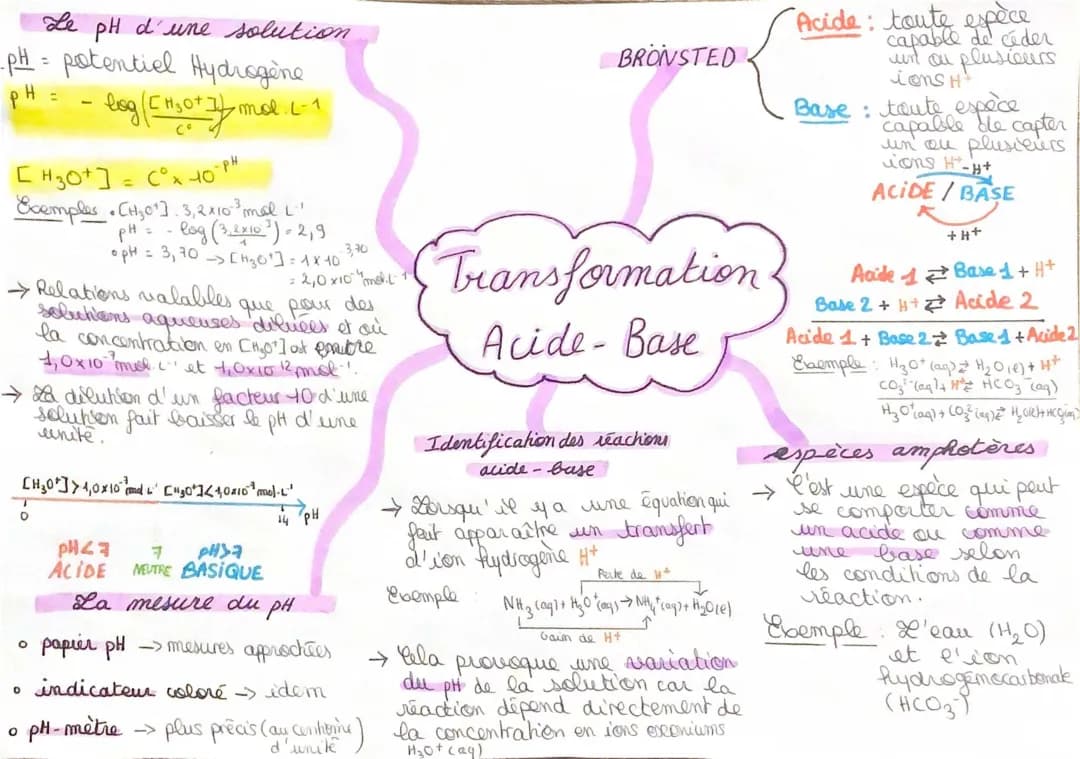 Le pH d'une solution
pH = potentiel Hydrogène
pH = - log([H3O+]/c°) mol.L-1
[H3O+] = C° x 10-pH
Exemples • [H3O+] . 3,2x10-3 mol L-1
pH = - log (3,2x10-3/1) = 2,9
• pH = 3,70 → [H3O+] = 1x10-3,70
= 2,0x10-4 mol.L-1
→ Relations valables que pour des
solutions aqueuses diluées et où
la concentration en [H3O+] est entre
1,0x10-7 mol.L-1 et 1,0x10-12 mol-1.
→ La dilution d'un facteur 10 d'une
solution fait baisser le pH d'une
unité.
[H3O+] > 1,0x10-7 mol L-1 [H3O+] < 1,0x10-7 mol.L-1
0 14 pH
pH<7 7 pH>7
ACIDE NEUTRE BASIQUE
La mesure du pH
o papier pH → mesures approchées
o indicateur coloré → idem
o pH-mètre → plus précis (au centième
d'unité)
Transformation
Acide-Base
BRÖNSTED
Acide : toute espèce
capable de céder
un ou plusieurs
ions H+
Base : toute espèce
capable de capter
un ou plusieurs
ions H+
-H+
ACIDE / BASE
+H+
Acide 1 ⇄ Base 1 + H+
Base 2 + H+ ⇄ Acide 2
Acide 1 + Base 2 ⇄ Base 1 + Acide 2
Exemple : H3O+ (aq) ⇄ H2O (l) + H+
CO3 2- (aq) + H+ ⇄ HCO3- (aq)
H3O+(aq) + CO3 2- (aq) ⇄ H2O(l) + HCO3-(aq)
Identification des réactions
acide-base
→ Lorsqu'il y a une équation qui
fait apparaître un transfert
d'ion hydrogène H+
Perte de H+
Exemple : NH3 (aq) + H3O+ (aq) → NH4+ (aq) + H2O(l)
Gain de H+
→ Cela provoque une variation
du pH de la solution car la
réaction dépend directement de
la concentration en ions
H3O+ (aq)
espèces amphotères
→ C'est une espèce qui peut
se comporter comme
un acide ou comme
une base selon
les conditions de la
réaction.
Exemple : L'eau (H2O)
et l'ion
hydrogénocarbonate
(HCO3-)